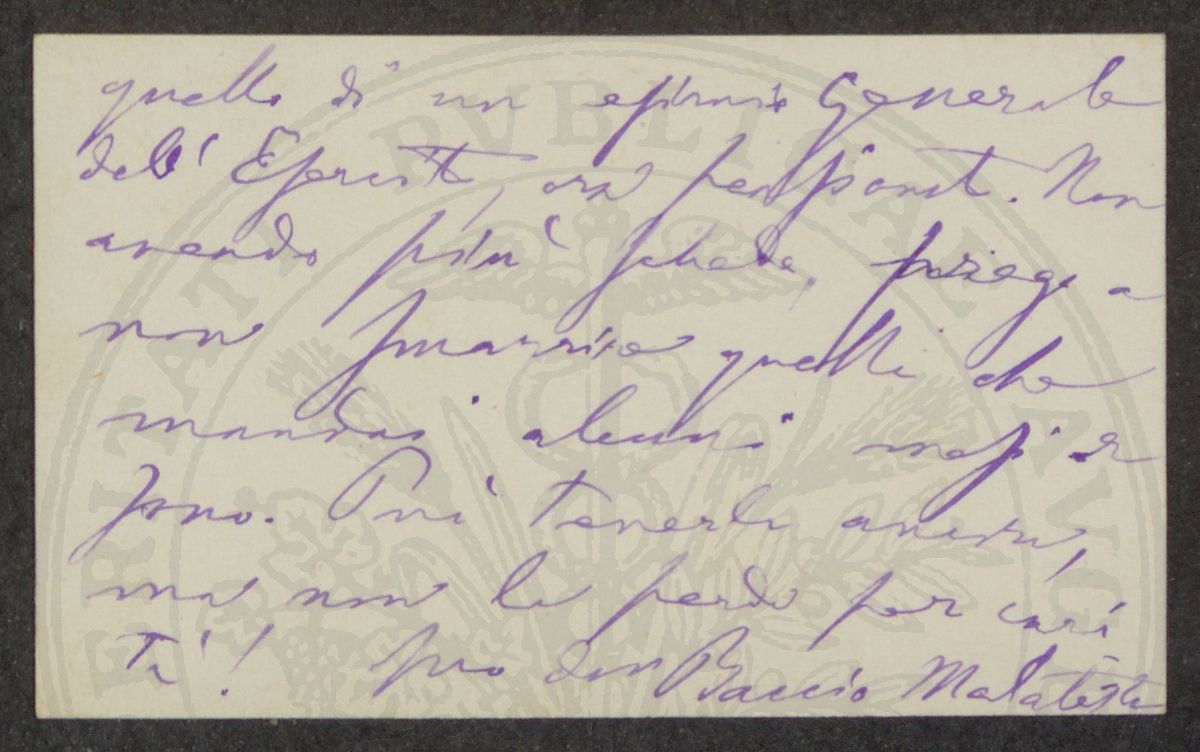 quello di un esimio Generale
dell' Esercito, ora pensionat. Non
avendo più schede, prego a
non smarrire quelle che
mandai alcuni mesi or
sono. Può tenerle ancora,
ma non le perda per cari
tà! suo don Baccio Malatesta
PVBLICAE